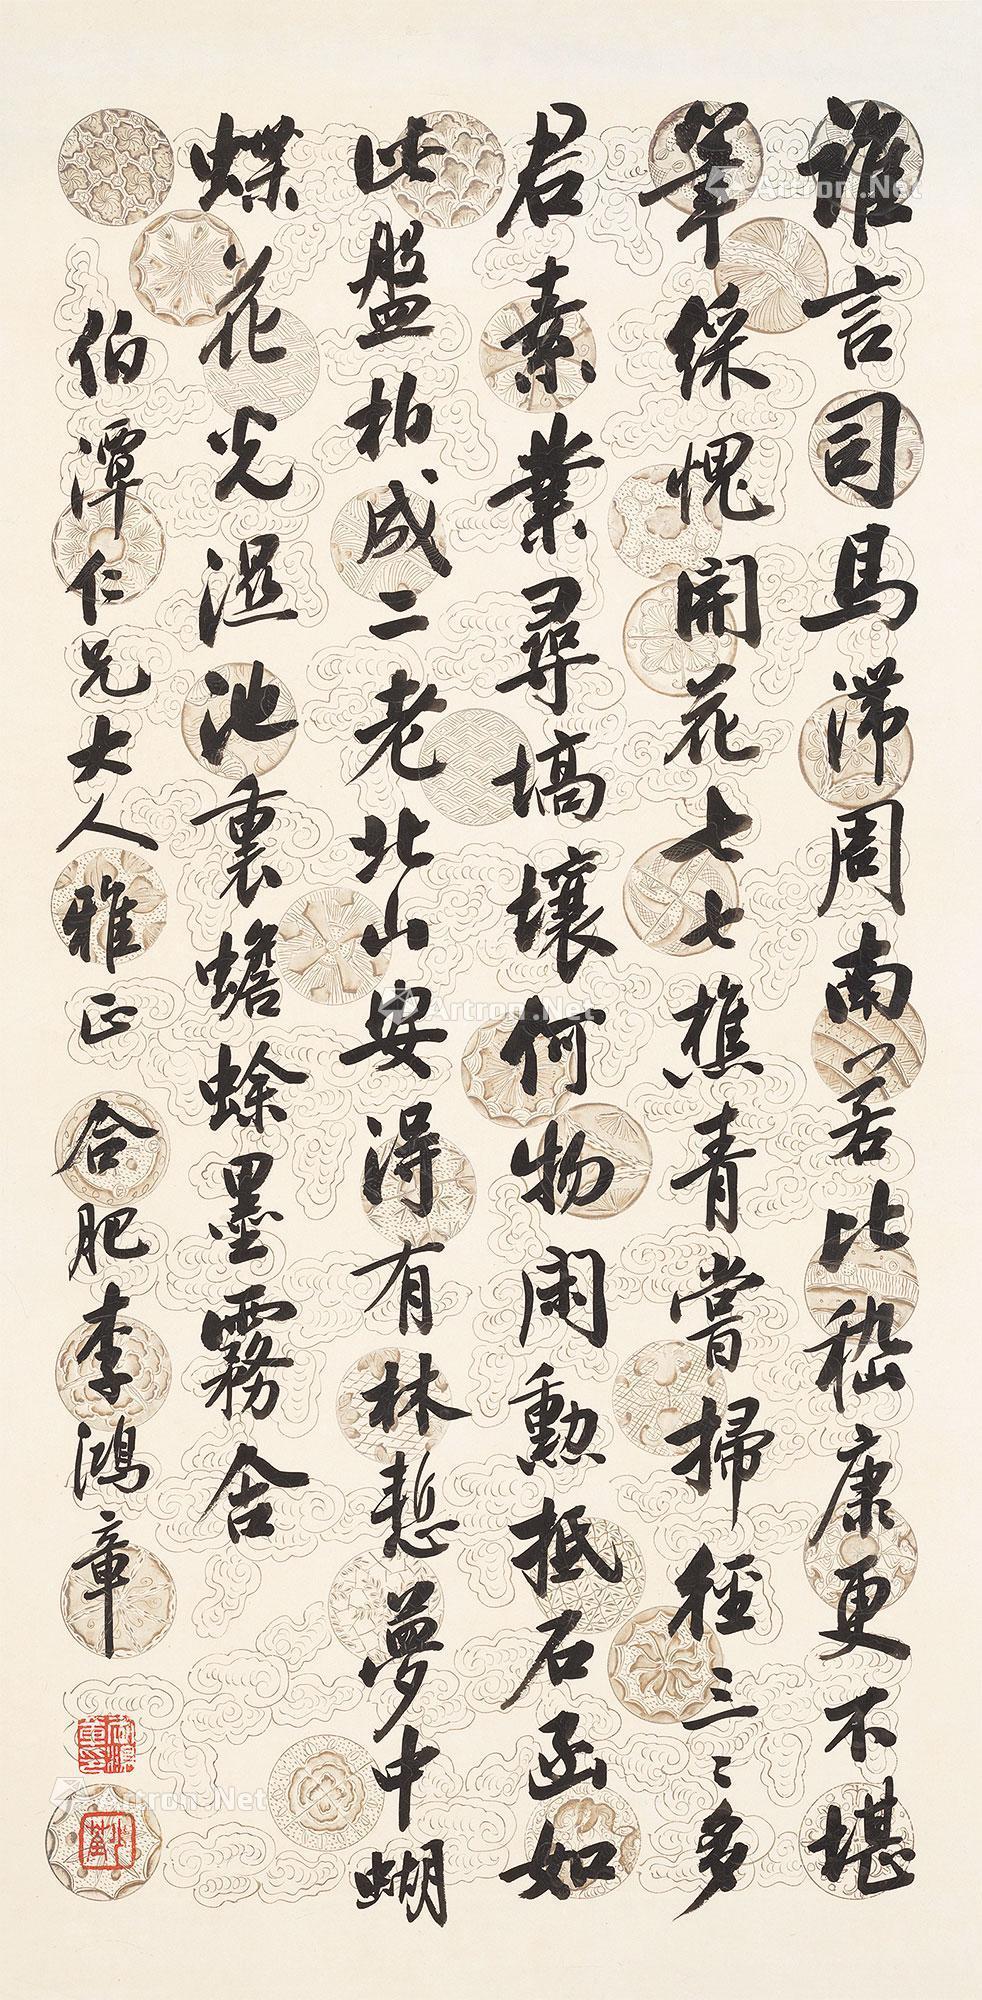 誰言司馬滯周南若比嵇康更不堪
筆綵愧開花七七樵青嘗掃徑三三多
君素業尋墳壤何物閑勳抵石函如
此盤柏成二老北山安得有林慙夢中蝴
蝶花光濕池裏蟾蜍墨霧含
伯潭仁兄大人雅正 合肥李鴻章
Artron.Net
Artron.Net
Artron.Net
Artron.Net
Artron.Net